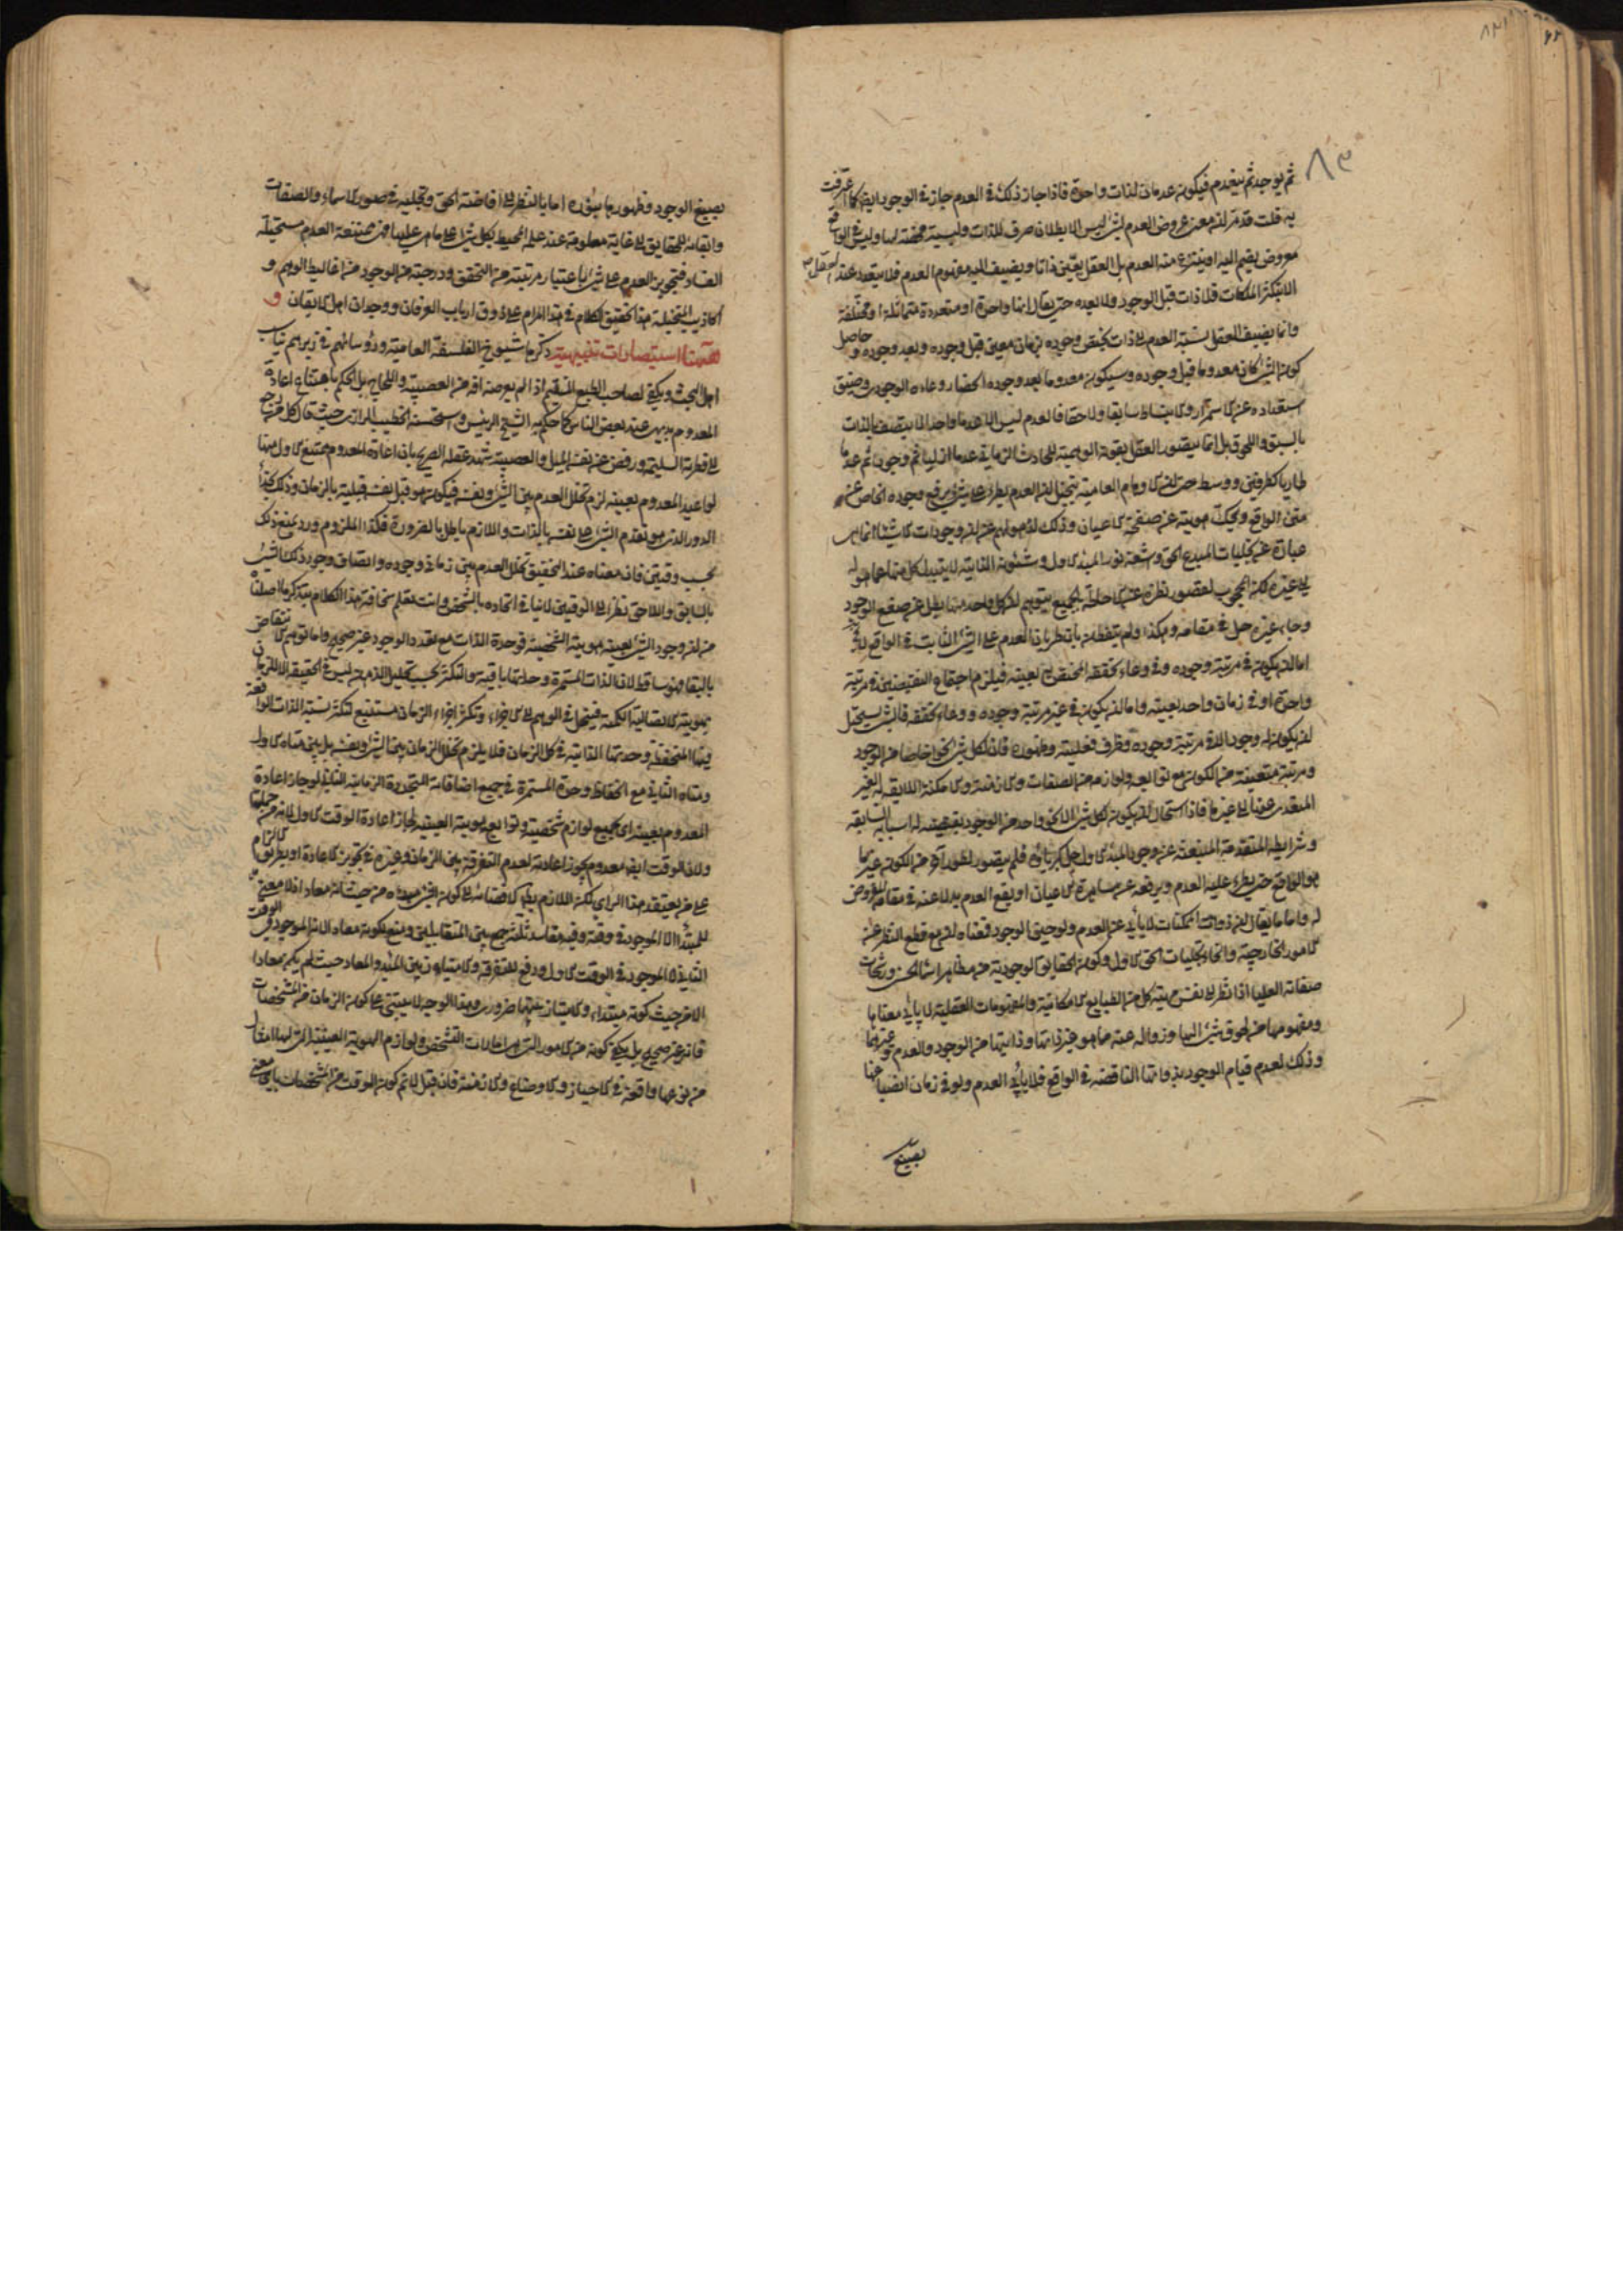 ٨٣
ثم يوجد ثم ينعدم فيكون عدمان لذات واحدة فاذا جاز ذلك في العدم جاز في الوجود ايضا كما عرفت
به قلت قد مر ان معنى عروض العدم لشئ ليس الا بطلان صرف للذات وليسية محضة لها وليس في الواقع
معروض يضم اليه او ينتزع منه العدم بل العقل يعين ذاتا ويضيف اليه مفهوم العدم فلا يتعدد عند العقل
الا بتكثر الملكات فلا ذات قبل الوجود ولا بعده حتى يقال انها واحدة او متعددة متماثلة او مختلفة
وانما يضيف العقل نسبة العدم الى ذات يختص وجوده بزمان معين قبل وجوده وبعد وجوده وحاصل
كون الشئ كان معدوما قبل وجوده وسيكون معدوما بعد وجوده انحصار وعاء الوجود وضيق
استعداده عن الاستمرار والانبساط سابقا ولاحقا فالعدم ليس الا عدما واحدا لا يتصف بالذات
بالسبق واللحوق بل انما يتصور العقل بقوته الوهمية للحادث الزماني عدما ازليا ثم وجودا ثم عدما
طاريا كطرفين ووسط حتى ان الاوهام العامية يتخيل ان العدم يطرء على شئ ويرفع وجوده الخاص عن
متن الواقع ويحك هويته عن صفحة الاعيان وذلك لذهولهم عن ان وجودات الاشياء انما هى
عبارة عن تجليات المبدع الحق واشعة نور المبدء الاول وشئونه الذاتية لا يتبدل كل منها عما هو له
الى غيره لكن المحجوب لقصور نظره عن الاحاطة بالجميع يتوهم ان كل واحد منها بطل عن صقع الوجود
وجاء غيره حل في مقامه وهكذا ولم يتفطن بان طريان العدم على الشئ الثابت في الواقع
اما ان يكون في مرتبة وجوده وفي وعاء تحققه المختص به بعينه فيلزم اجتماع النقيضين في مرتبة
واحدة او في زمان واحد بعينه واما ان يكون في غير مرتبة وجوده ووعاء تحققه فالشئ يستحيل
ان يكون له وجود الا في مرتبة وجوده وظرف فعليته وظهوره فان لكل شئ نحوا خاصا من الوجود
ومرتبة متعينة من الكون مع توابعه ولوازمه من الصفات والازمنة والامكنة اللايقة له الغير
المتعدى عنها الى غيرها فاذا استحال ان يكون لكل شئ الا نحو واحد من الوجود يقتضيه له اسبابه السابقة
وشرايطه المتقدمة المنبعثة عن وجود المبدء الاول جل كبريائه فلم يتصور لطور آخر من الكون غير ما
هو الواقع حتى يطرء عليه العدم ويرفعه عن ساهرة الاعيان او يقع العدم بدلا عنه في مقامه المفروض
له واما ما يقال ان ذوات الممكنات لا يأبى عن العدم ولو حين الوجود فمعناه ان مع قطع النظر عن
الامور الخارجية وانحاء تجليات الحق الاول وكون الحقايق الوجودية من مظاهر اسمائه الحسنى ورشحات
صفاته العليا اذا نظر الى نفس مهية كل من الطبايع الامكانية والمفهومات العقلية لا يأبى معناها
ومفهومها من لحوق شئ اليها وزواله عنه مما هو غير ذاتها وذاتياتها من الوجود والعدم وغيرهما
وذلك لعدم قيام الوجود بذواتها الناقصة في الواقع فلا يأبى العدم ولو في زمان انصباغها
بصبغ
بصبغ الوجود وظهورها بنوره اما بالنظر الى افاضة الحق وتجليه في صور الاسماء والصفات
وابقائه للحقايق الى غاية معلومة عند علمه المحيط بكل شئ على ما هى عليها فهى ممتنعة العدم مستحيلة
الفساد فتجويز العدم على شئ باعتبار مرتبته من التحقق ودرجته من الوجود من اغاليط الوهم و
اكاذيب المتخيلة هذا تحقيق الكلام في هذا المرام على ذوق ارباب العرفان ووجدان اهل الايقان و
ههنا استبصارات تنبيهية ذكرها شيوخ الفلسفة العامية ورؤسائهم في زبرهم تناسب
اهل البحث ويكفى لصاحب الطبع المستقيم اذا لم يعرضه افة من العصبية واللجاج بل الحكم بامتناع اعادة
المعدوم بديهى عند بعض الناس كما حكم به الشيخ الرئيس واستحسنه الخطيب الرازى حيث قال كل من رجع
الى فطرته السليمة ورفض عن نفسه الميل والعصبية شهد عقله الصريح بان اعادة المعدوم ممتنع الاول منها
لو اعيد المعدوم بعينه لزم تخلل العدم بين الشئ ونفسه فيكون هو قبل نفسه قبلية بالزمان وذلك بحذاء
الدور الذى هو تقدم الشئ على نفسه بالذات واللازم باطل بالضرورة فكذا الملزوم ورد بمنع ذلك
بحسب وقتين فان معناه عند التحقيق تخلل العدم بين زمانى وجوده واتصاف وجود ذلك الشئ
بالسابق واللاحق نظرا الى الوقتين لا ينافى اتحاده بالشخص وانت تعلم سخافة هذا الكلام بتذكر ما اصلناه
من ان وجود الشئ بعينه هويته الشخصية فوحدة الذات مع تعدد الوجود غير صحيح واما توهم الانتقاض
بالبقاء فهو ساقط لان الذات المستمرة وحدتها باقية والتكثر بحسب تحليل الذهن ليس في الحقيقة الا للزمان
بهويته الاتصالية الكمية فينحل في الوهم الى الاجزاء وتكثر اجزاء الزمان مستتبع لتكثر نسبة الذات الواقعة
فيها المنحفظة وحدتها الذاتية في كل الزمان فلا يلزم تخلل الزمان بين الشئ ونفسه بل بين متاه الاول
ومتاه الثانى مع انحفاظ وحدة المستمرة في جميع اضافاته المتجددة الزمانية الثانى لو جاز اعادة
المعدوم بعينه اى بجميع لوازم شخصيته وتوابع هويته العينية لجاز اعادة الوقت الاول لانه من جملتها
ولان الوقت ايضا معدوم يجوز اعادته لعدم التفرقة بين الزمان وغيره في تجويز الاعادة او بطريق الالزام
على من يعتقد هذا الراى لكن اللازم باطل لافضائه الى كون الشئ مبتدء من حيث انه معاد اذ لا معنى
للمبتدأ الا الموجود في وقته وفيه مفاسد ثلثة جمع بين المتقابلين ومنع لكونه معاد الانه الموجود في الوقت
الثانى وهذا الموجود في الوقت الاول ورفع للتفرقة والامتياز بين المبتدء والمعاد حيث لم يكن معادا
الا من حيث كونه مبتدء والامتياز بينهما ضرورى وهذا الوجه لا يبتنى على كون الزمان من المشخصات
فانه غير صحيح بل يكفى كونه من الامور التى هى امارات التشخص ولوازم الهوية العينية التى لها امثال
من نوعها واقعة في الاحياز والاوضاع والازمنة فان قيل لا ثم كون الوقت من المشخصات باى معنى